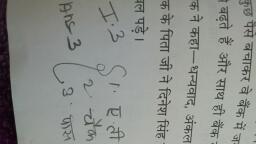 कुछ पैसे बचाकर वे बैंक में
बढ़ते हैं और साथ ही बैंक
ने कहा—धन्यवाद, अंकल
के पिता जी ने दिनेश सिंह
पड़े।
I.3
Ans-3 1. ए.टी
2. चेक
3. पास